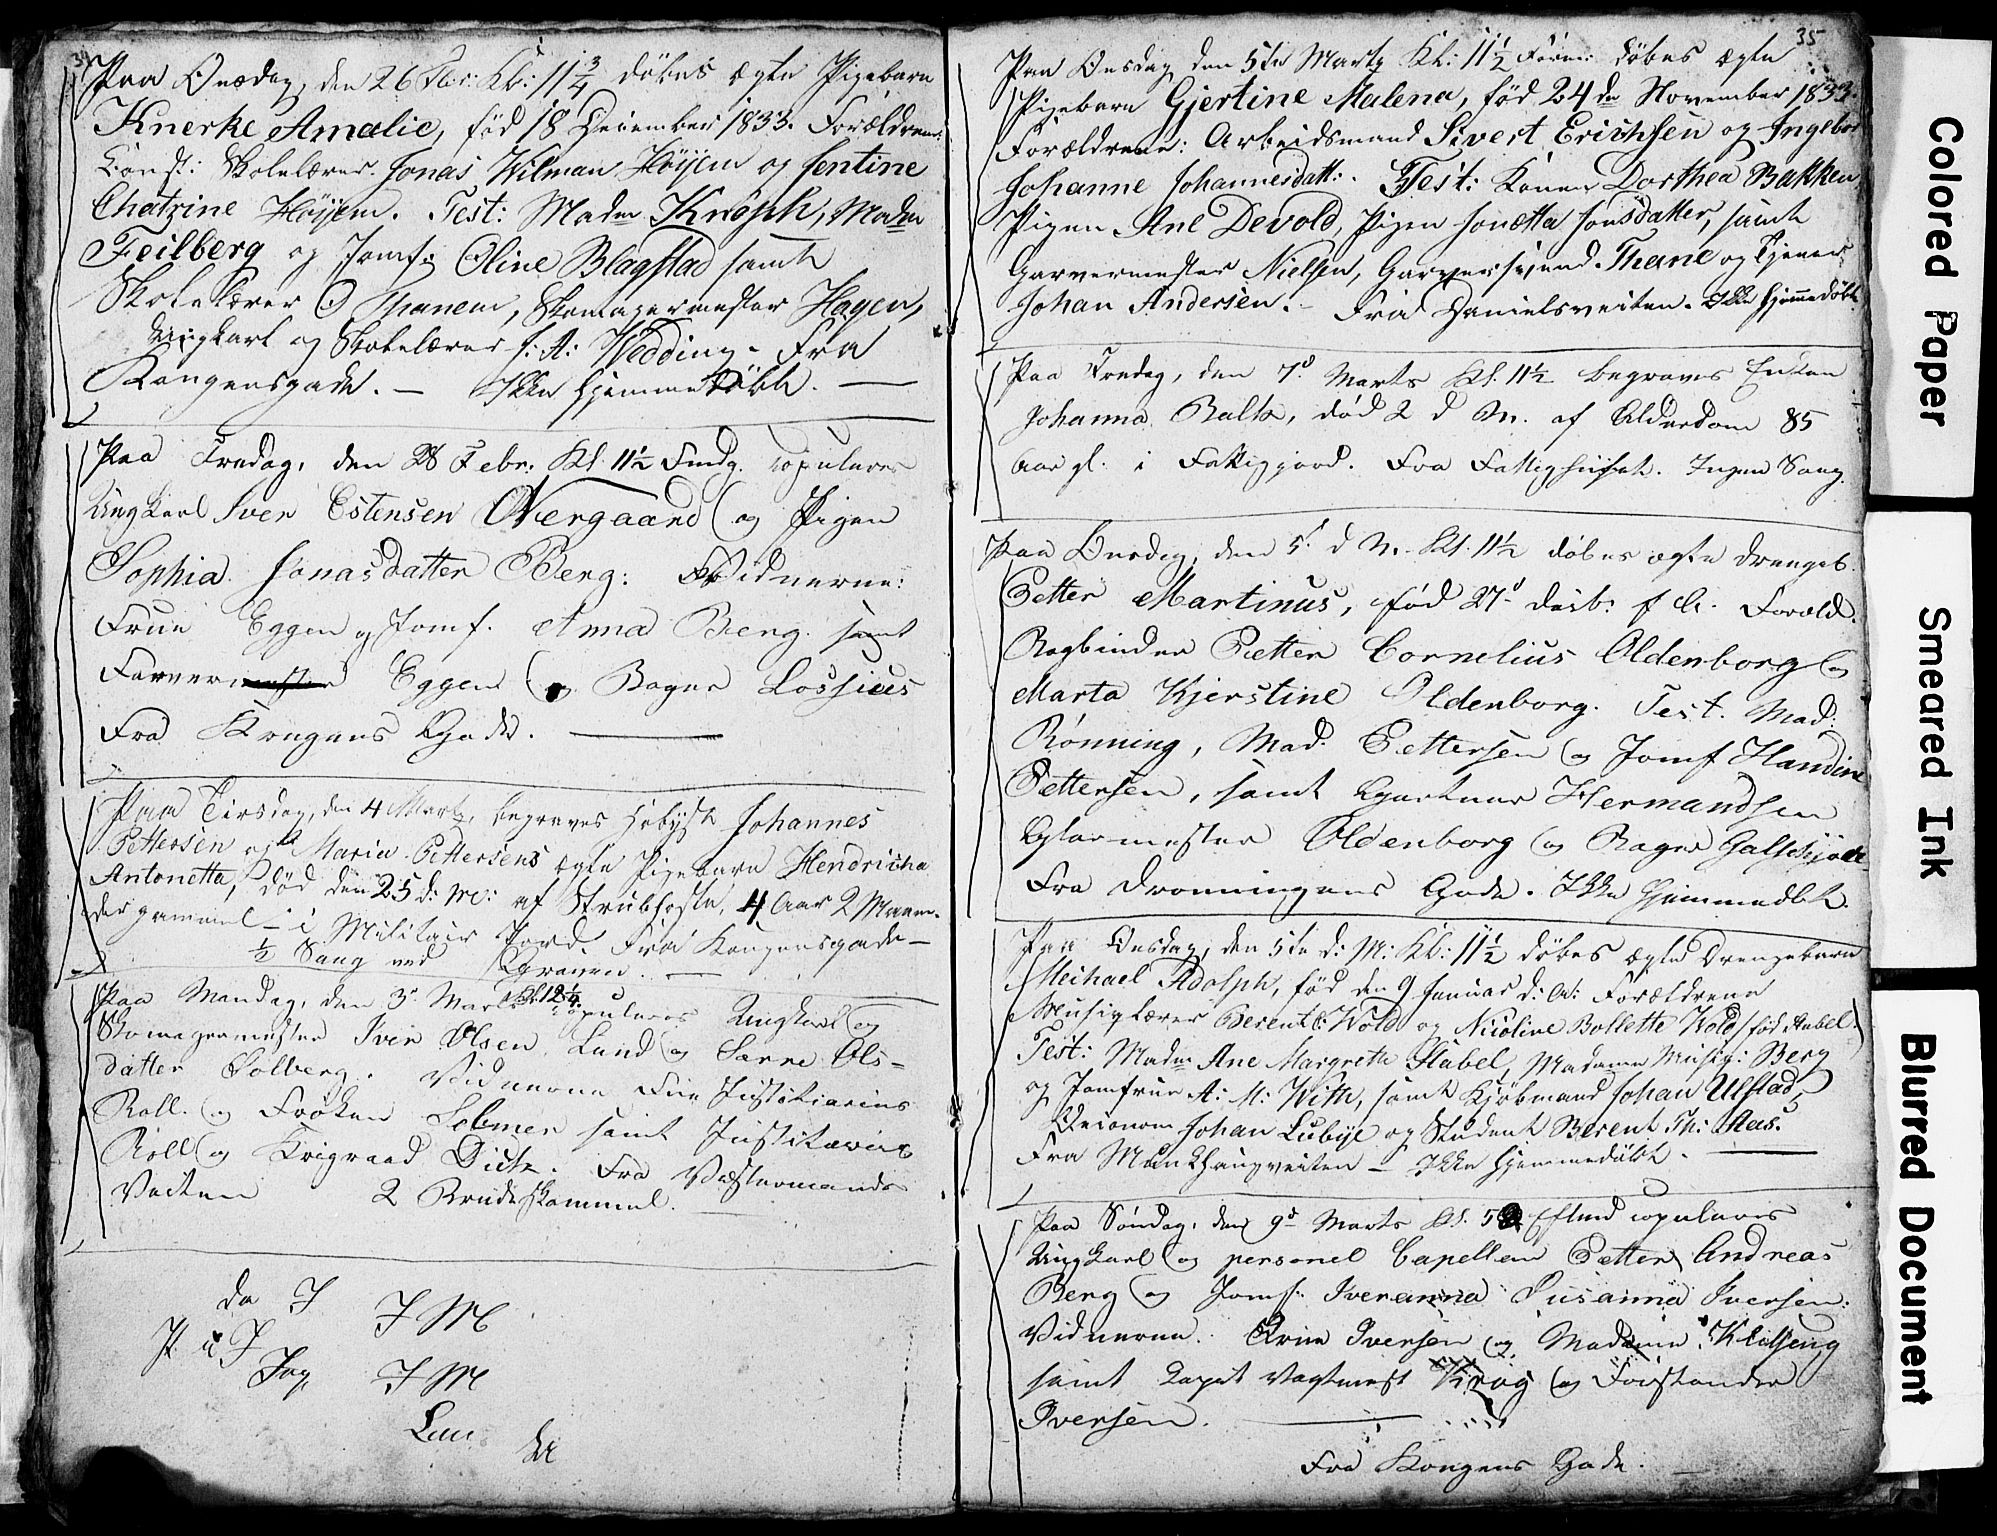 34
Paa Onsdag, den 26 Febr: Kl: 11 3/4 döbes ægte Pigebarn
Knerke Amalie, föd 18 December 1833. Forældrene:
Const: Skolelærer Jonas Wilman Höÿem og Jentine
Chatrine Höÿem. Test: Madm Knöph, Madm
Feilberg og Jomf: Oline Blagstad samt
Skolelærer O Thanem, Skomagermester Hagen,
Ungkarl og Skolelærer J: A: Wedding. Fra
Kongensgade. — Ikke hjemmedöbt. —
Paa Fredag, den 28 Febr: Kl. 11½ Fmdg. copuleres
Ungkarl Iver Estensen Overgaard og Pigen
Sophia Jonasdatter Berg: Vidnerne:
Frue Eggen og Jomf. Anna Berg samt
Farver Eggen og Bager Lossius
Fra Kongens Gade. —
Paa Tirsdag, den 4 Martz, begraves Johannes
Pettersen og Maria Pettersens ægte Pigebarn Hendricha
Antonetta, död den 25 d: M: af Strubehoste, 4 Aar 2 Maane-
der gammel - i Militair Jord. Fra Kongensgade —
½ Sang ved Graven. —
Paa Mandag, den 3d Marts Kl. 12¼. copuleres Ungkarl og
Skomagermester Iver Olsen Lund og Sarre Ols-
datter Solberg. Vidnerne Frue Justitiarius
Roll og Fröken Selmer samt Justitiarius
Roll og Krigraad Dick. Fra Væktermands
Veiten 2 Brudeskammel. —
da I I M
P. u I
Jag I M
Lau
35
Paa Onsdag den 5te Martz Kl: 11½ Form: döbes ægte
Pigebarn Gjertine Malena, föd 24de November 1833.
Forældrene: Arbeidsmand Sivert Erichsen og Ingebor
Johanne Johannesdatt:. Test: Konen Dorthea Bakken
Pigen Ane Devold, Pigen Jonetta Jonsdatter, samt
Garvermester Nielsen, Garversvend Thane og Tjener
Johan Andersen. - Fra Danielsveiten. Ikke hjemmedöbt.
Paa Fredag, den 7d Marts Kl. 11½ begraves Enken
Johanna Balk, död 2 d M. af Alderdom 85
Aar gl. i Fattiggaard. Fra Fattighuset. Ingen Sang.
Paa Onsdag, den 5t d M. Kl. 11½ döbes ægte Drengeb.
Petter Martinus, föd 27d Decb: f A. Foræld.
Bogbinder Petter Cornelius Oldenborg og
Marta Kjerstine Oldenborg. Test. Mad.
Rönning, Mad. Pettersen og Jomf Handine
Pettersen, samt Gartner Hermandsen
Glarmester Oldenborg og Bager Galschjödt
Fra Dronningens Gade. Ikke hjemmedbt.
Paa Onsdag, den 5te d: M: Kl: 11½ döbes ægte Drengebarn
Meichael Adolph, föd den 9 Januar d: A: Forældrene
Musiglærer Berent: Wold og Nicoline Bollette Wold, föd Habel.
Test: Madm Ane Margreta Habel, Madame Musig: Berg
og Jomfrue A: M: With, samt Kjöbmand Johan Ulstad,
Oeconom Johan Lubÿe og Student Berent Th: Aas.
Fra Munkhaugveiten — Ikke hjemmedöbt. —
Paa Söndag, den 9d Marts Kl. 5 Eftmd copuleres
Ungkarl og personel Capellan Petter Andreas
Berg og Jomf: Iveranna Susanna Iversen:
Vidnerne. Frue Iversen og Madame Klüsing
samt Vagtmest Krog og Forstander
Iversen. —
Fra Kongens Gade. —
Colored Paper
Smeared Ink
Blurred Document